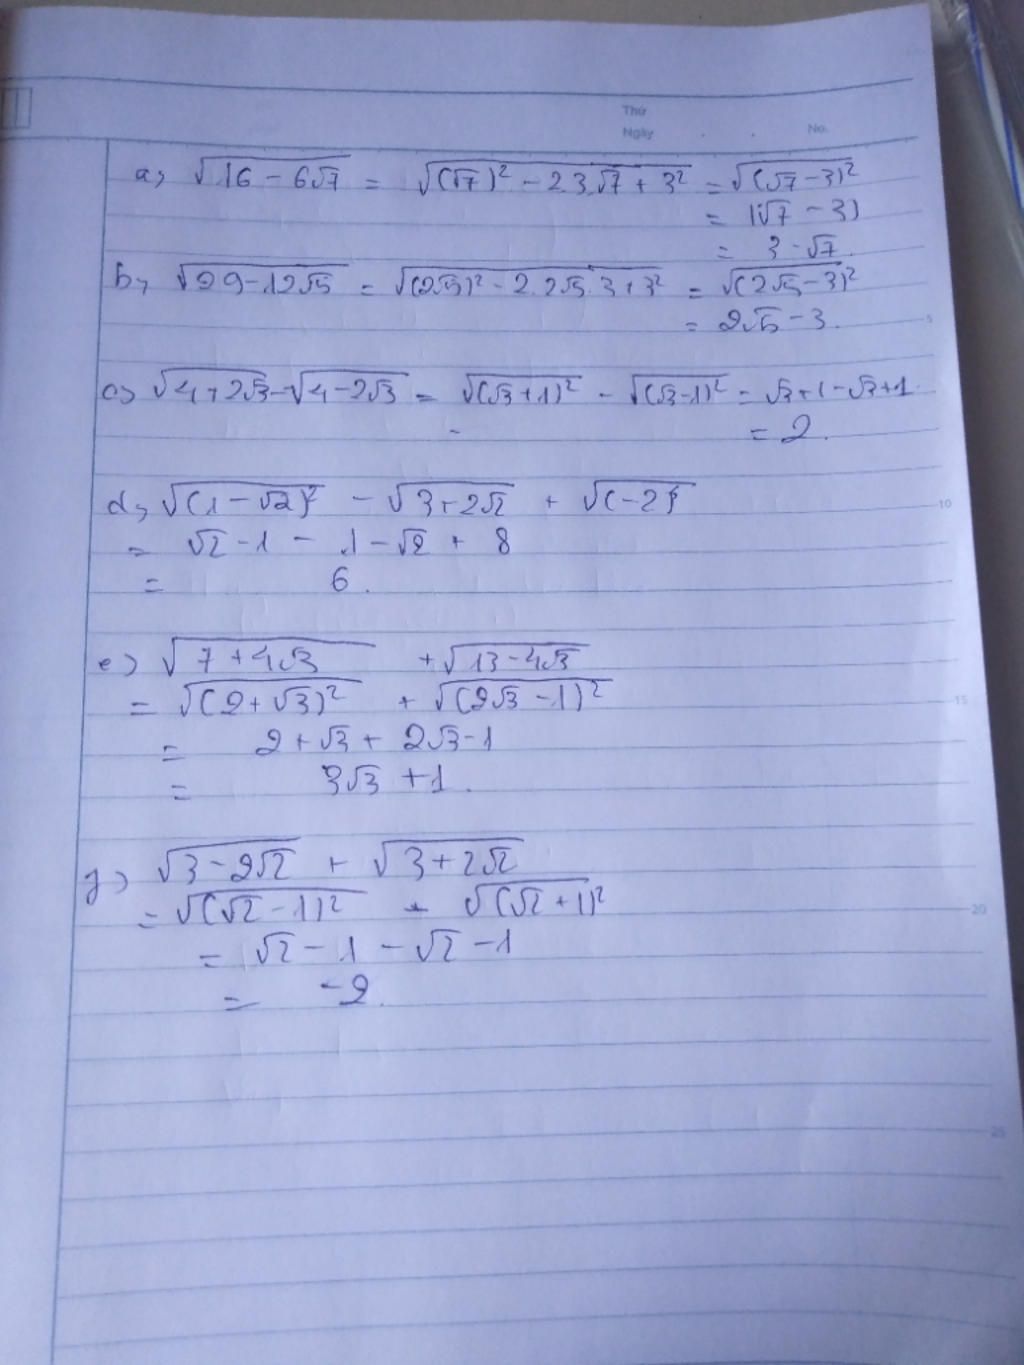 Thứ
Ngày . . No.
a, √(16 - 6√7) = √((√7)² - 2.3.√7 + 3²) = √((√7 - 3)²)
= |√7 - 3|
= 3 - √7.
b, √(29 - 12√5) = √((2√5)² - 2.2√5.3 + 3²) = √((2√5 - 3)²)
= 2√5 - 3.
5
c, √(4 + 2√3) - √(4 - 2√3) = √((√3 + 1)²) - √((√3 - 1)²) = √3 + 1 - √3 + 1
= 2.
d, √((1 - √2)²) - √(3 + 2√2) + √((-2)⁶)
10
= √2 - 1 - 1 - √2 + 8
= 6.
e) √(7 + 4√3) + √(13 - 4√3)
= √((2 + √3)²) + √((2√3 - 1)²)
15
= 2 + √3 + 2√3 - 1
= 3√3 + 1.
√(3 - 2√2) + √(3 + 2√2)
= √((√2 - 1)²) - √((√2 + 1)²)
20
= √2 - 1 - √2 - 1
= -2.
25